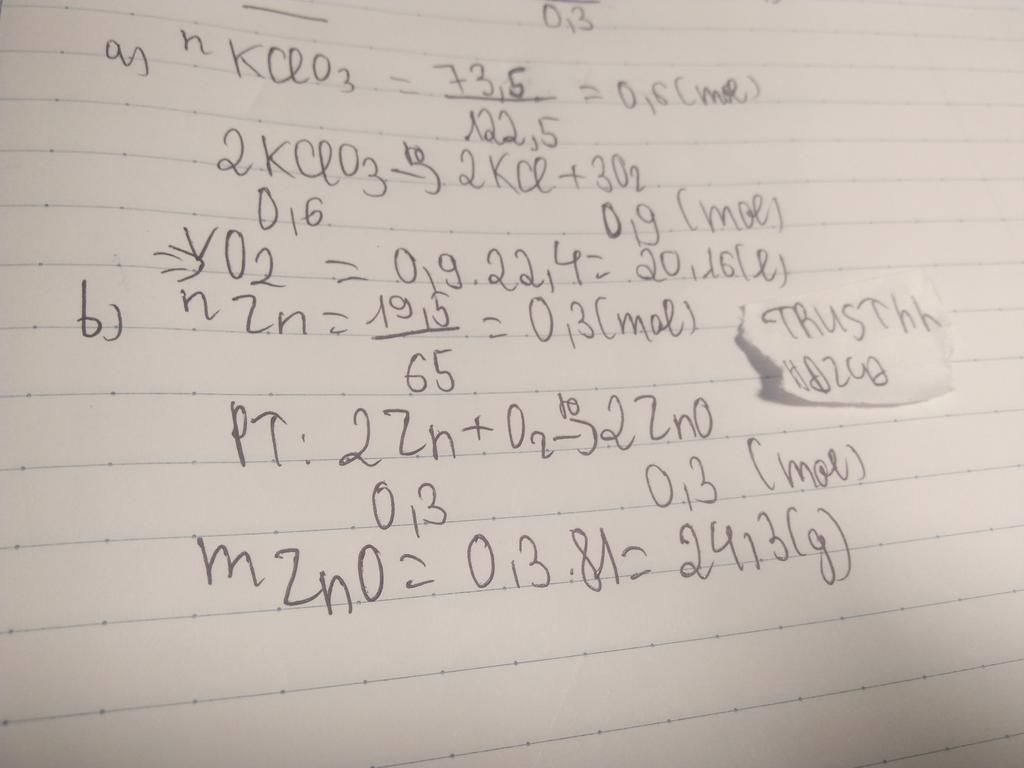 0,3
a) nKClO3 = 73,5 / 122,5 = 0,6 (mol)
2KClO3 →t° 2KCl + 3O2
0,6 0,9 (mol)
=> VO2 = 0,9.22,4 = 20,16(l)
b) nZn = 19,5 / 65 = 0,3 (mol)
PT: 2Zn + O2 →t° 2ZnO
0,3 0,3 (mol)
mZnO = 0,3.81 = 24,3(g)
TRUSThh